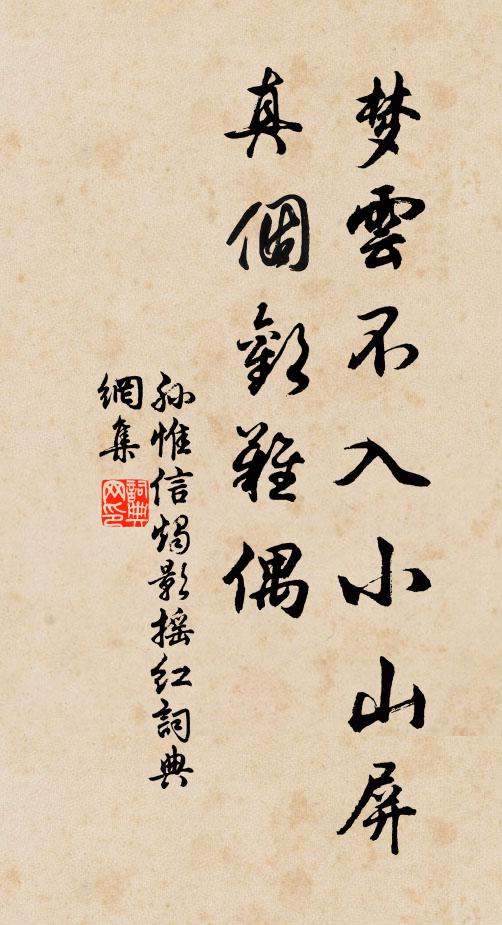 梦雲不入小山屏
真個歡難偶
孙惟信燭影摇红詞典
網集
詞典
网印